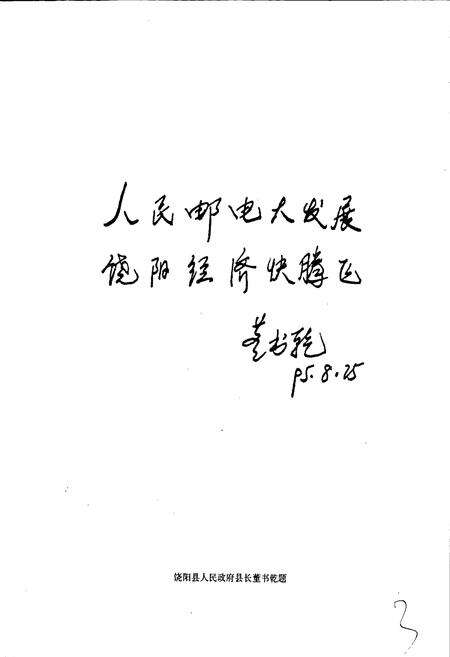 人民邮电大发展
饶阳经济快腾飞
董书乾
95.8.25
饶阳县人民政府县长董书乾题
3